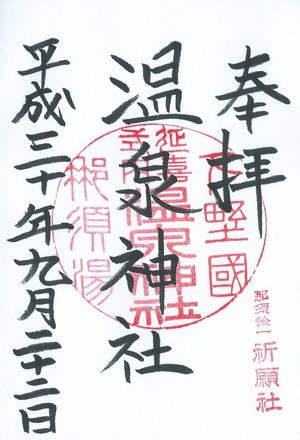 奉拝
下野國
那須餘一祈願社
温泉神社
延喜式内
温泉神社
那須湯
平成三十年九月二十二日